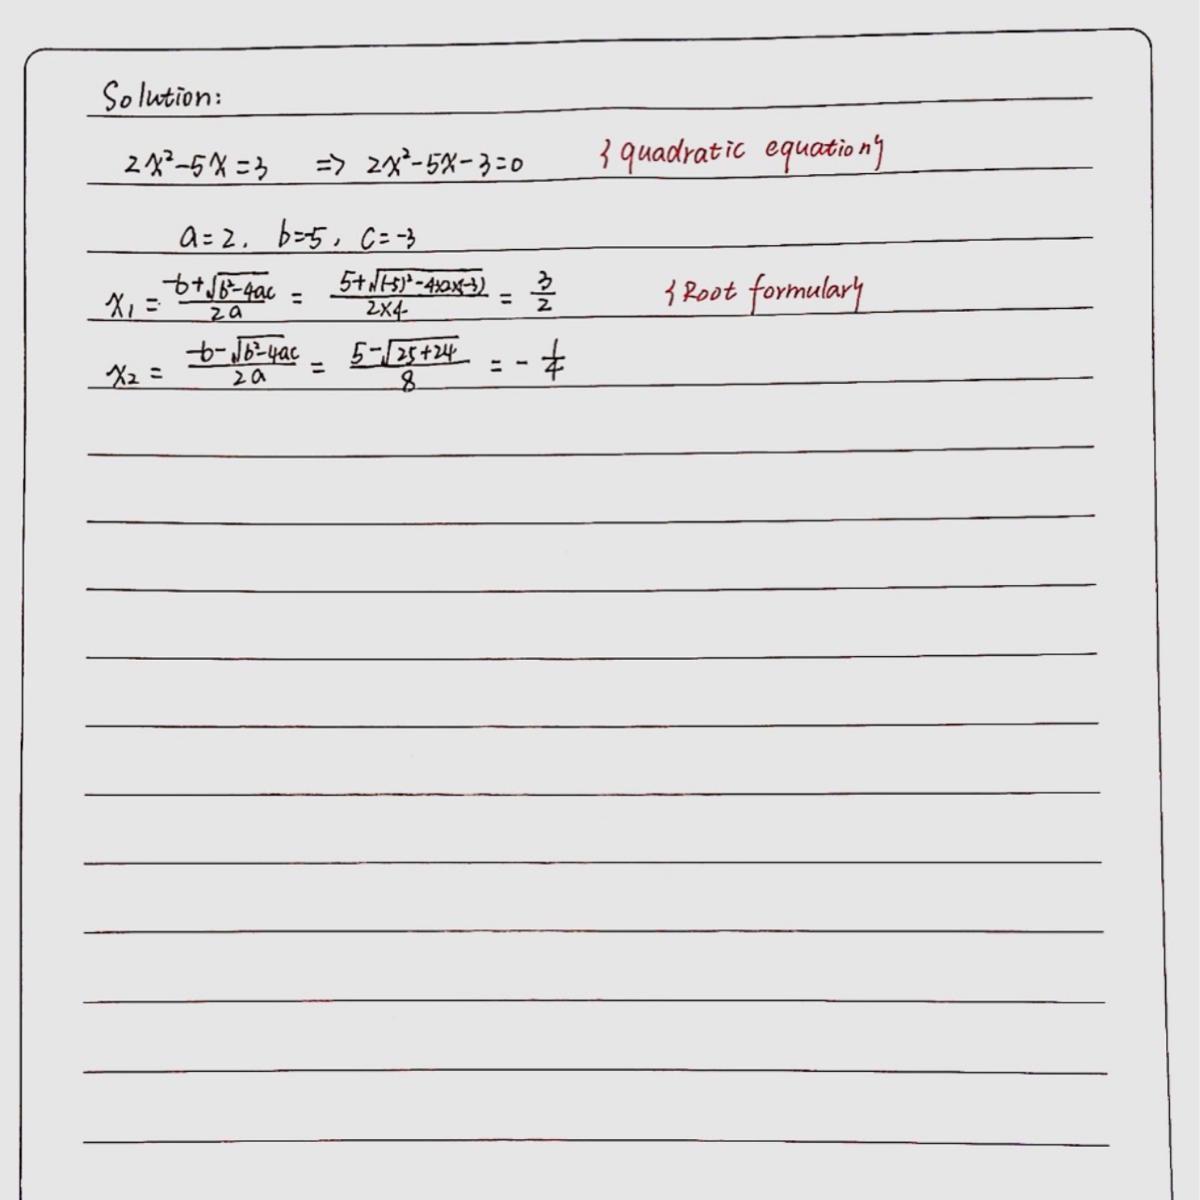 Solution:
2x²-5x=3 => 2x²-5x-3=0 {quadratic equation}
a=2, b=-5, c=-3
x₁ = (-b+√(b²-4ac))/(2a) = (5+√((-5)²-4×2×(-3)))/(2×4) = 3/2 {Root formular}
x₂ = (-b-√(b²-4ac))/(2a) = (5-√(25+24))/8 = -1/4